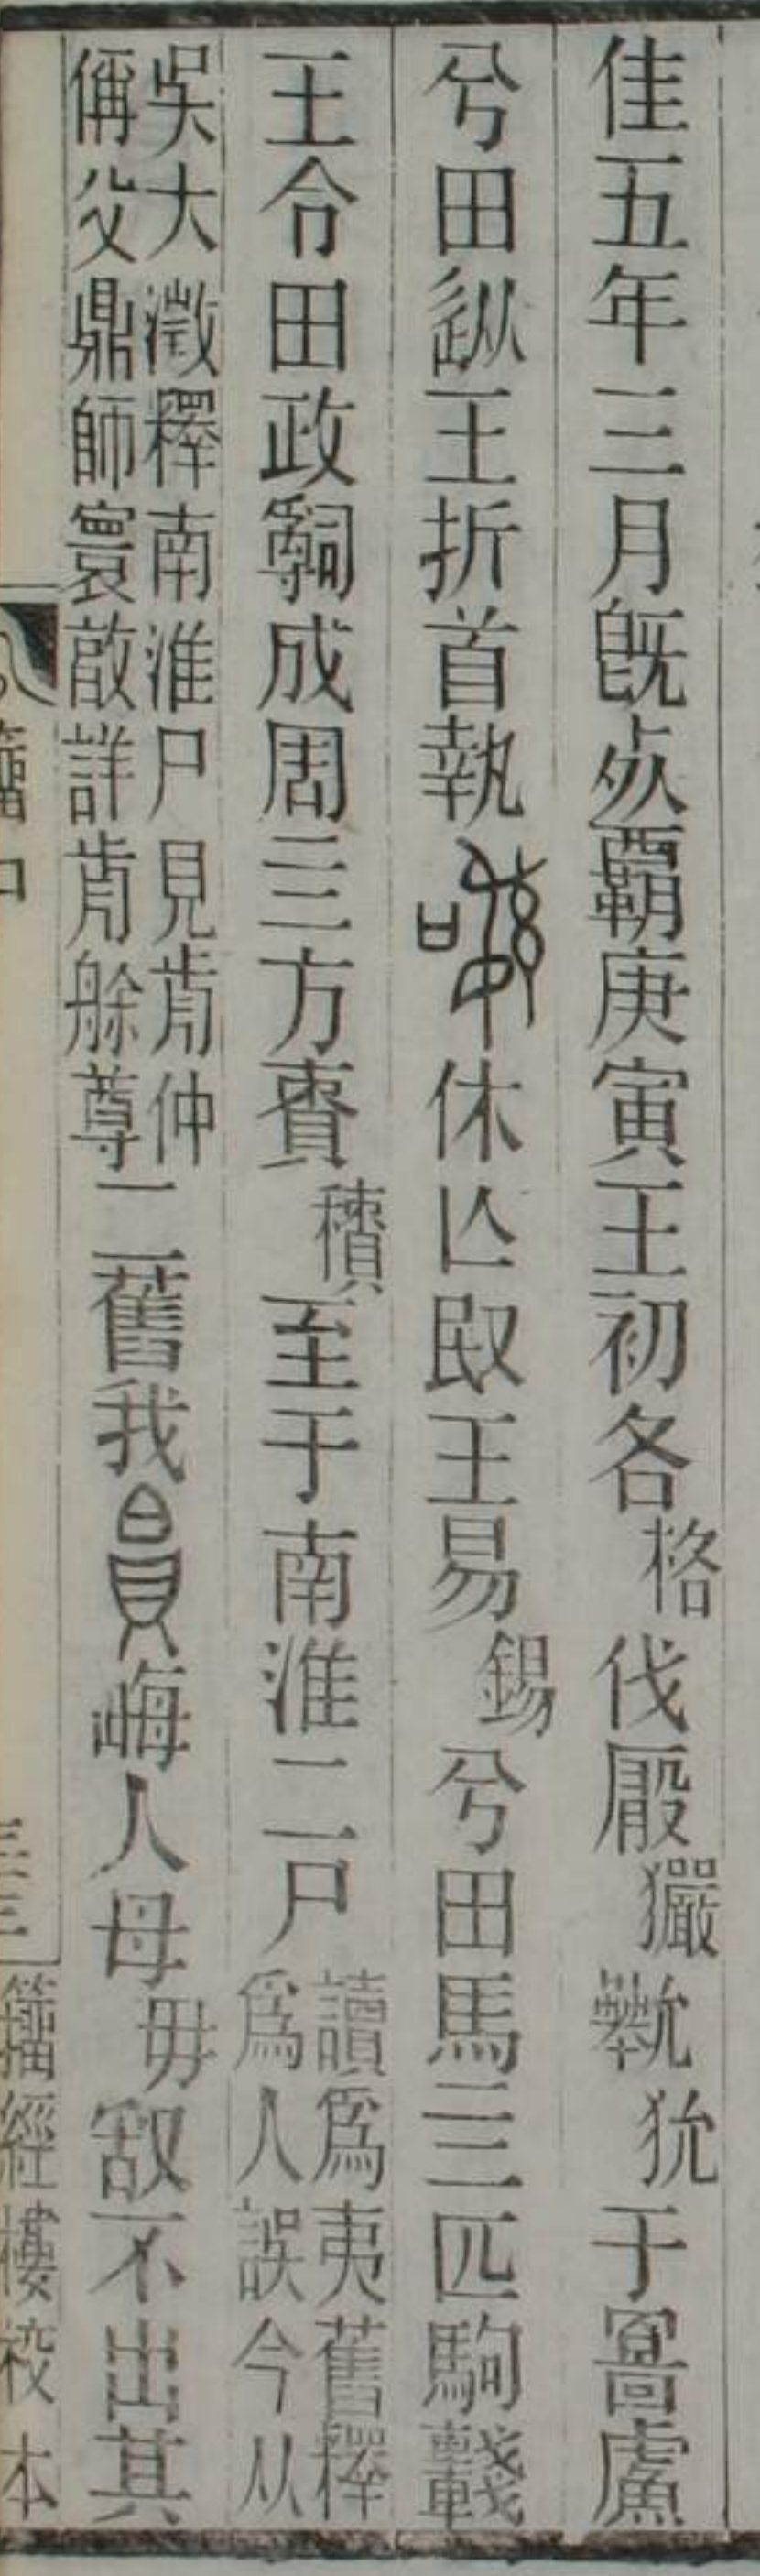 隹五年三月旣死霸庚寅王初各格伐厰玁狁于
兮田從王折首執休亾敃王易錫兮田馬亖匹駒
王令田政𤔲成周亖方責積至于南淮二尸讀爲夷舊釋
爲人誤今从
吳大澂釋南淮尸見歬仲
偁父鼎師寰𣪘詳歬艅尊二舊我畮人母毋敢不出其
籀經樓校本